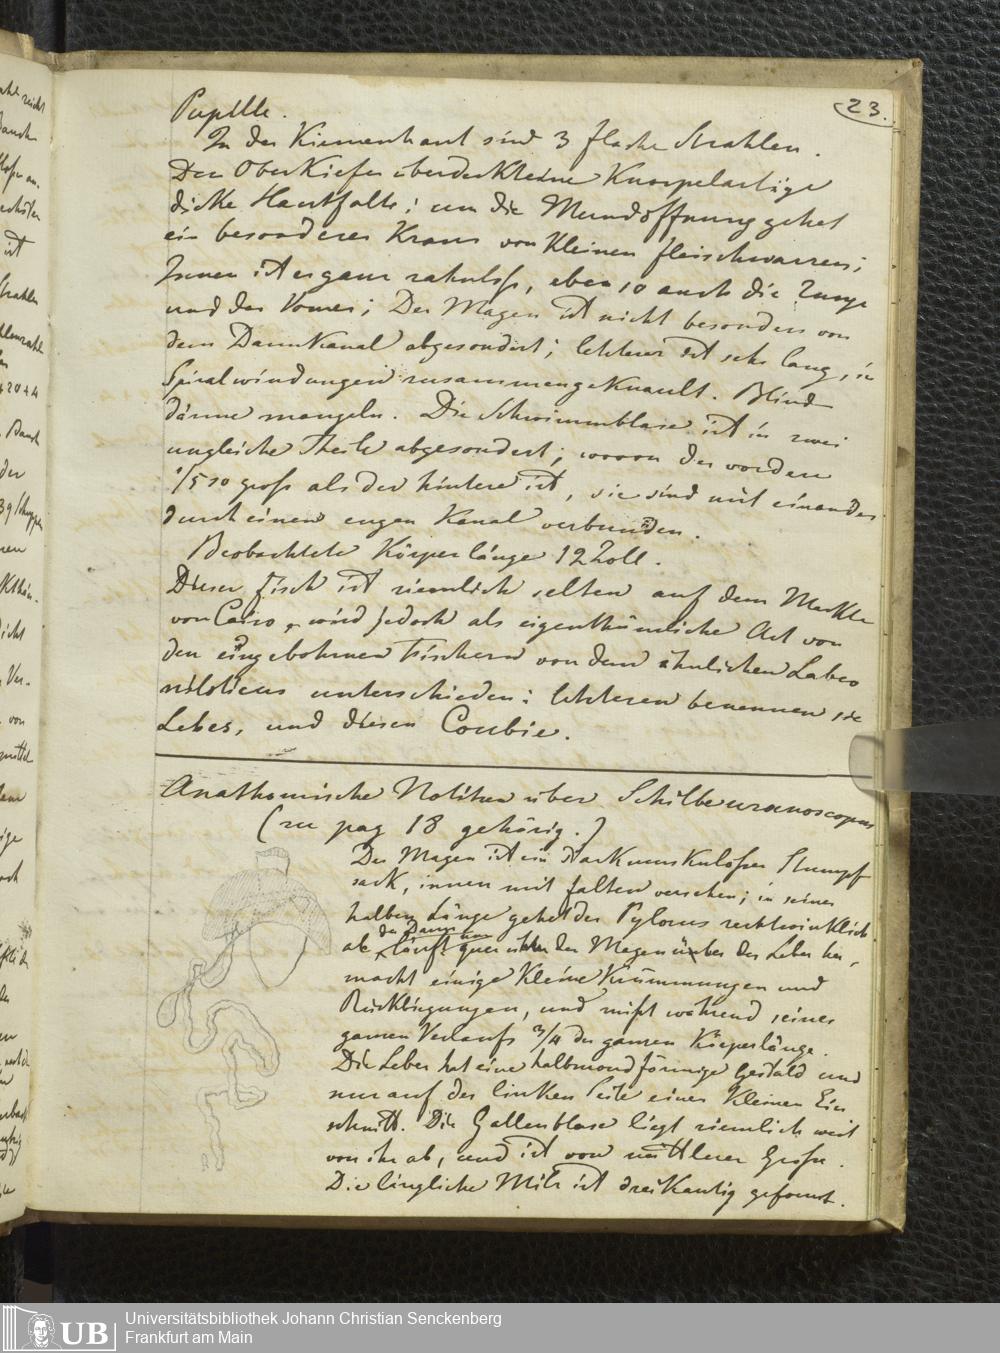 23.
Pupille.
In der Kiemenhaut sind 3 flache Strahlen.
Den Oberkiefer überdeckt eine Knorpelartige
dicke Hautfalte; um die Mundöffnung gehet
ein besonderer Kranz von kleinen fleischwarzen;
Innen ist er ganz zahnloß, eben so auch die Zunge
und der Vomer; Der Magen ist nicht besonders von
dem Darmkanal abgesondert; letzterer ist sehr lang, in
Spiralwindungen zusammengeknault. Blind
därme mangeln. Die Schwimmblase ist in zwei
ungleiche Theile abgesondert; wovon der vordere
1/5 so groß als der hintere ist, sie sind mit einander
durch einen engen Kanal verbunden.
Beobachtete Körperlänge 12 Zoll.
Dieser Fisch ist ziemlich selten auf dem Markte
von Cairo, wird jedoch als eigenthümliche Art von
den eingebohrnen Fischern von dem ähnlichen Labeo
niloticus unterschieden: letzteren benennen sie
Lebes, und diesen Coubie.
Anathomische Notitzen über Schilbe uranoscopus
(zu pag 18 gehörig.)
Der Magen ist ein stark muskuloser Stumpf
sack, innen mit falten versehen; in seiner
halben Länge gehet der Pylorus rechtwinklich
ab, der Darm
läuft quer über den Magen über der Leber her,
macht einige kleine Krümmungen und
Rückbiegungen, und mißt während seines
ganzen Verlaufs 3/4 der ganzen Körperlänge.
Die Leber hat eine halbmondförmige Gestald und
nur auf der linken Seite einen kleinen Ein
schnitt. Die Gallenblase liegt ziemlich weit
von ihr ab, und ist von mittlerer Große.
Die längliche Milz ist dreikantig geformt.
UB
Universitätsbibliothek Johann Christian Senckenberg
Frankfurt am Main